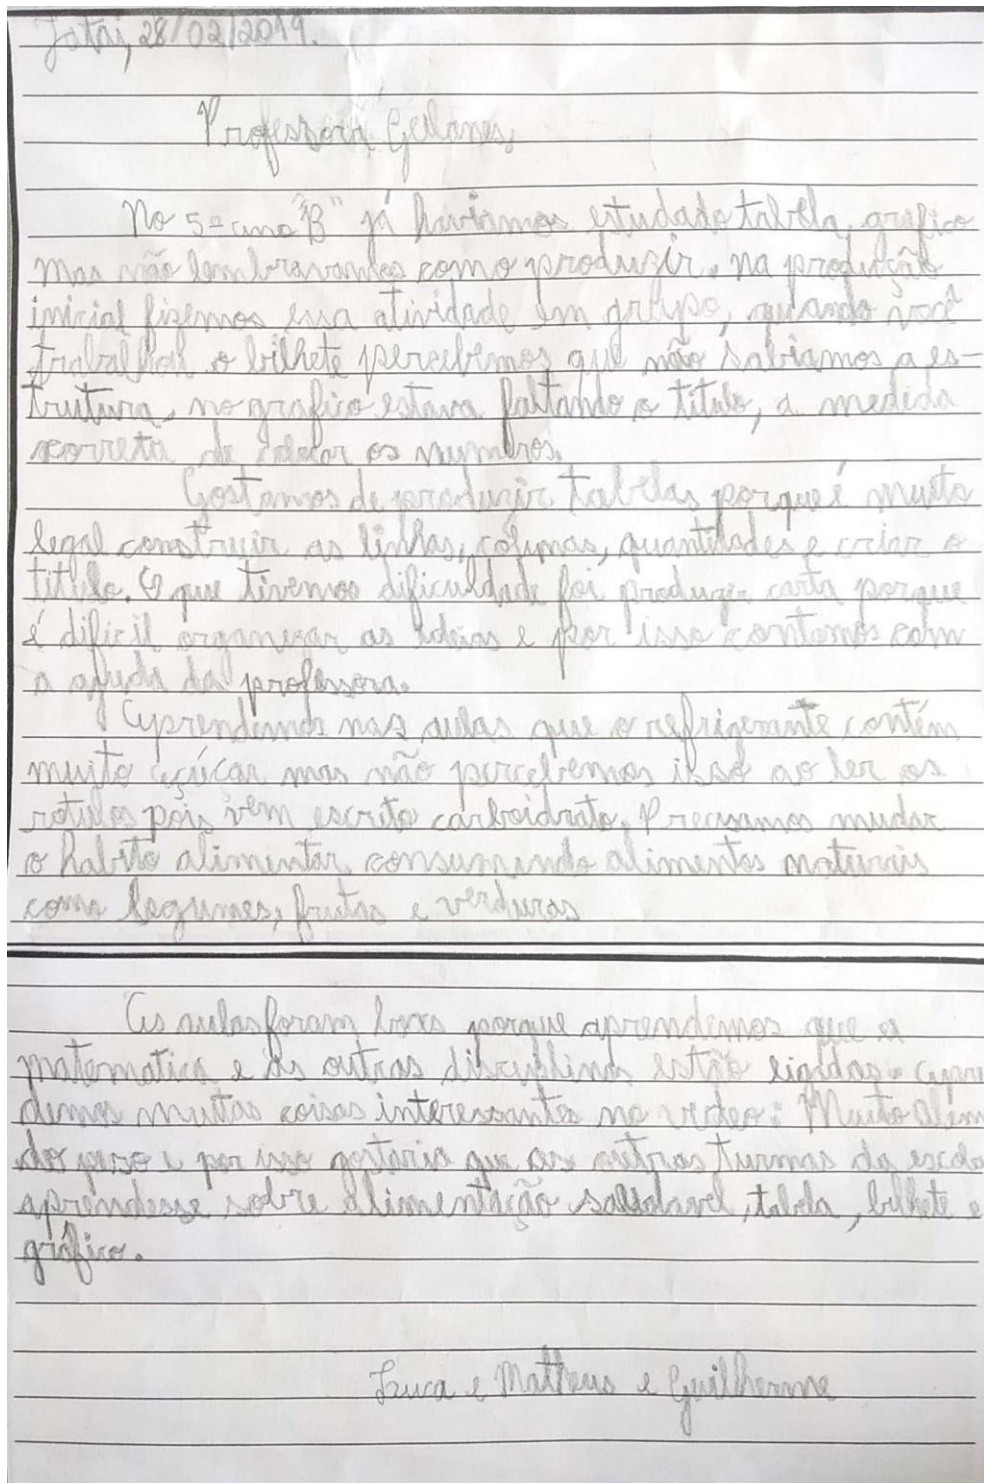 Jataí, 28/02/2019.
Professora Geilanes,
No 5º ano "B" já haviamos estudado tabela, grafico
mas não lembravamos como produzir. na produção
inicial fizemos essa atividade em grupo, quando você
trabalhou o bilhete percebemos que não sabiamos a es-
trutura, no grafico estava faltando o titulo, a medida
correta de os numeros.
Gostamos de produzir tabelas porque é muito
legal construir as linhas, colunas, quantidades e criar o
titulo. O que tivemos dificuldade foi produzir carta porque
é dificil as idéias e por isso contamos com
a ajuda da professora.
Aprendemos nas aulas que o refrigerante contém
muito açúcar mas não percebemos isso ao ler os
rotulos pois vem escrito carboidrato. Precisamos mudar
o habito alimentar consumindo alimentos naturais
como legumes, frutas e verduras
As aulas foram boas porque aprendemos que a
matematica e as outras estão . apre
demos muitas coisas interessantes no video: Muito Além
do peso e por isso que as outras turmas da escola
aprendesse sobre alimentação , tabela, bilhete e
gráfico.
Luca e Matheus e Guilherme